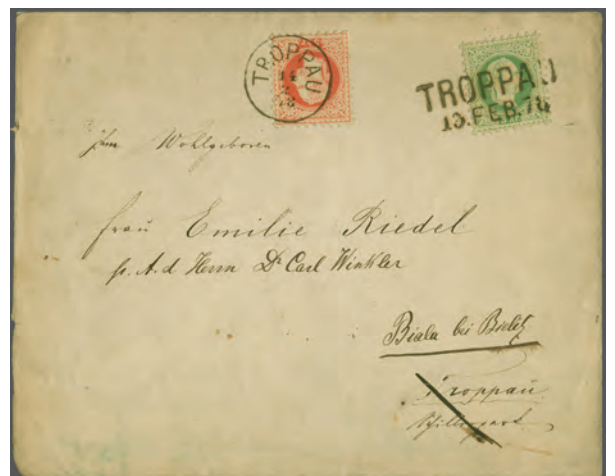 TROPPAU
14
2
78
TROPPAU
13.FEB.78
Wohlgeboren
Frau Emilie Riedel
pr. A.d Herrn Dr Carl Winkler
Biala bei Bielitz
Troppau